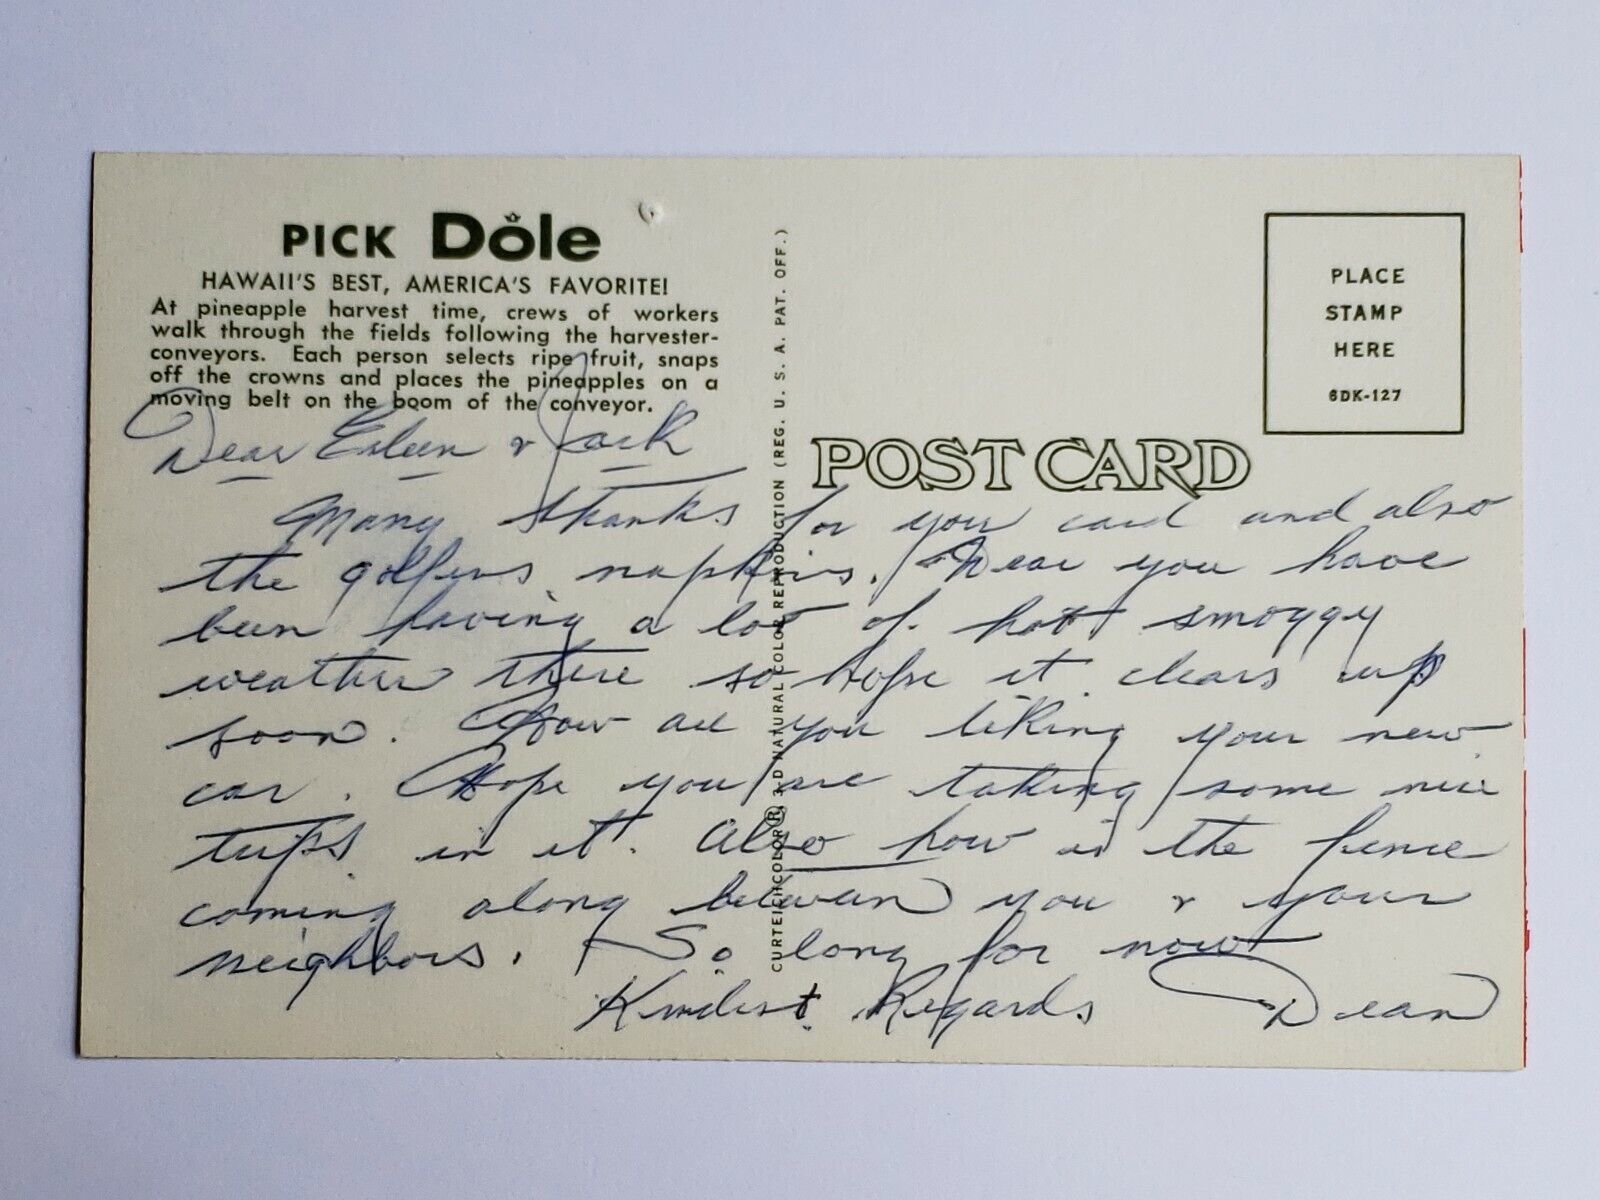 PICK Dole
HAWAII'S BEST, AMERICA'S FAVORITE!
At pineapple harvest time, crews of workers
walk through the fields following the harvester-
conveyors. Each person selects ripe fruit, snaps
off the crowns and places the pineapples on a
moving belt on the boom of the conveyor.
CURTEICHCOLOR® 3-D NATURAL COLOR REPRODUCTION (REG. U. S. A. PAT. OFF.)
PLACE
STAMP
HERE
6DK-127
POST CARD
Dear Eileen & Jack
Many thanks for your card and also
the golfers napkins. Dear you have
been having a lot of hot smoggy
weather there so hope it clears up
soon. How are you liking your new
car. Hope you are taking some nice
trips in it. Also how is the fence
coming along between you & your
neighbors. So long for now
Kindest Regards Dean